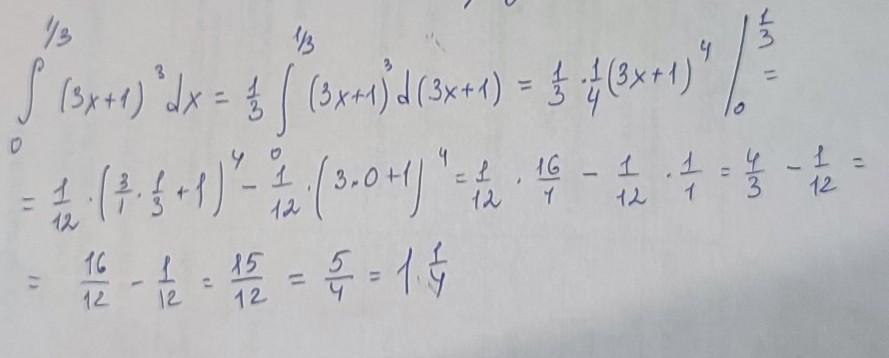 ∫₀^{1/3} (3x+1)³dx = 1/3 ∫₀^{1/3} (3x+1)³d(3x+1) = 1/3 · 1/4 (3x+1)⁴ |₀^{1/3} =
= 1/12 · (3/1 · 1/3 + 1)⁴ − 1/12 · (3·0+1)⁴ = 1/12 · 16/1 − 1/12 · 1/1 = 4/3 − 1/12 =
= 16/12 − 1/12 = 15/12 = 5/4 = 1·1/4